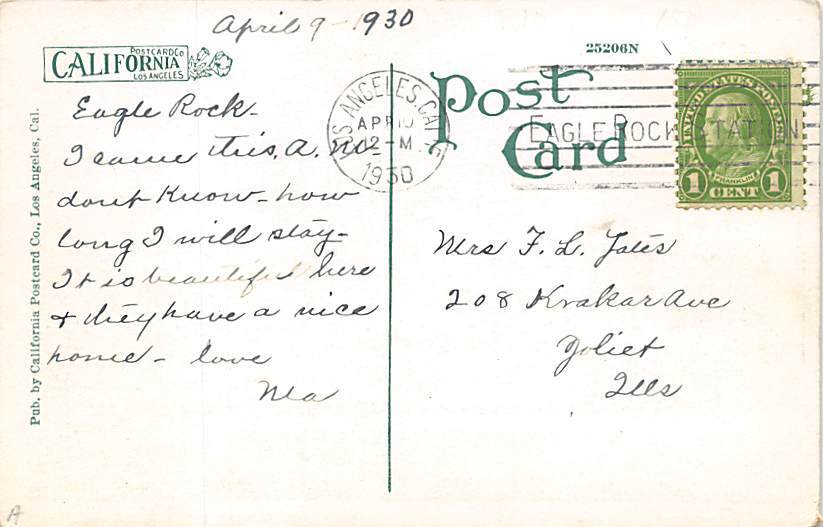 April 9 - 1930
25206N
POSTCARD Co
CALIFORNIA
LOS ANGELES
Post
Card
LOS ANGELES, CAL
APR 10
12-M
1930
EAGLE ROCK STATION
UNITED STATES POSTAGE
FRANKLIN
1 CENT 1
Eagle Rock -
I came this, A. M.
dont Know - how
long I will stay -
It is beautiful here
& they have a nice
home - love
Ma
Mrs F. L. Yates
208 Krakar Ave
Joliet
Ills
Pub. by California Postcard Co., Los Angeles, Cal.
A